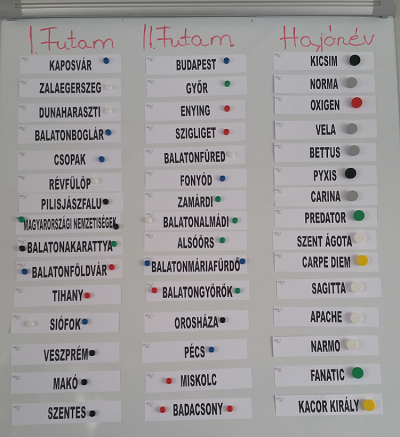 I. Futam II. Futam Hajónév
KAPOSVÁR BUDAPEST KICSIM
ZALAEGERSZEG GYŐR NORMA
DUNAHARASZTI ENYING OXIGEN
BALATONBOGLÁR SZIGLIGET VELA
CSOPAK BALATONFÜRED BETTUS
RÉVFÜLÖP FONYÓD PYXIS
PILISJÁSZFALU ZAMÁRDI CARINA
MAGYARORSZÁGI NEMZETISÉGEK BALATONALMÁDI PREDATOR
BALATONAKARATTYA ALSÓÖRS SZENT ÁGOTA
BALATONFÖLDVÁR BALATONMÁRIAFÜRDŐ CARPE DIEM
TIHANY BALATONGYÖRÖK SAGITTA
SIÓFOK OROSHÁZA APACHE
VESZPRÉM PÉCS NARMO
MAKÓ MISKOLC FANATIC
SZENTES BADACSONY KACOR KIRÁLY